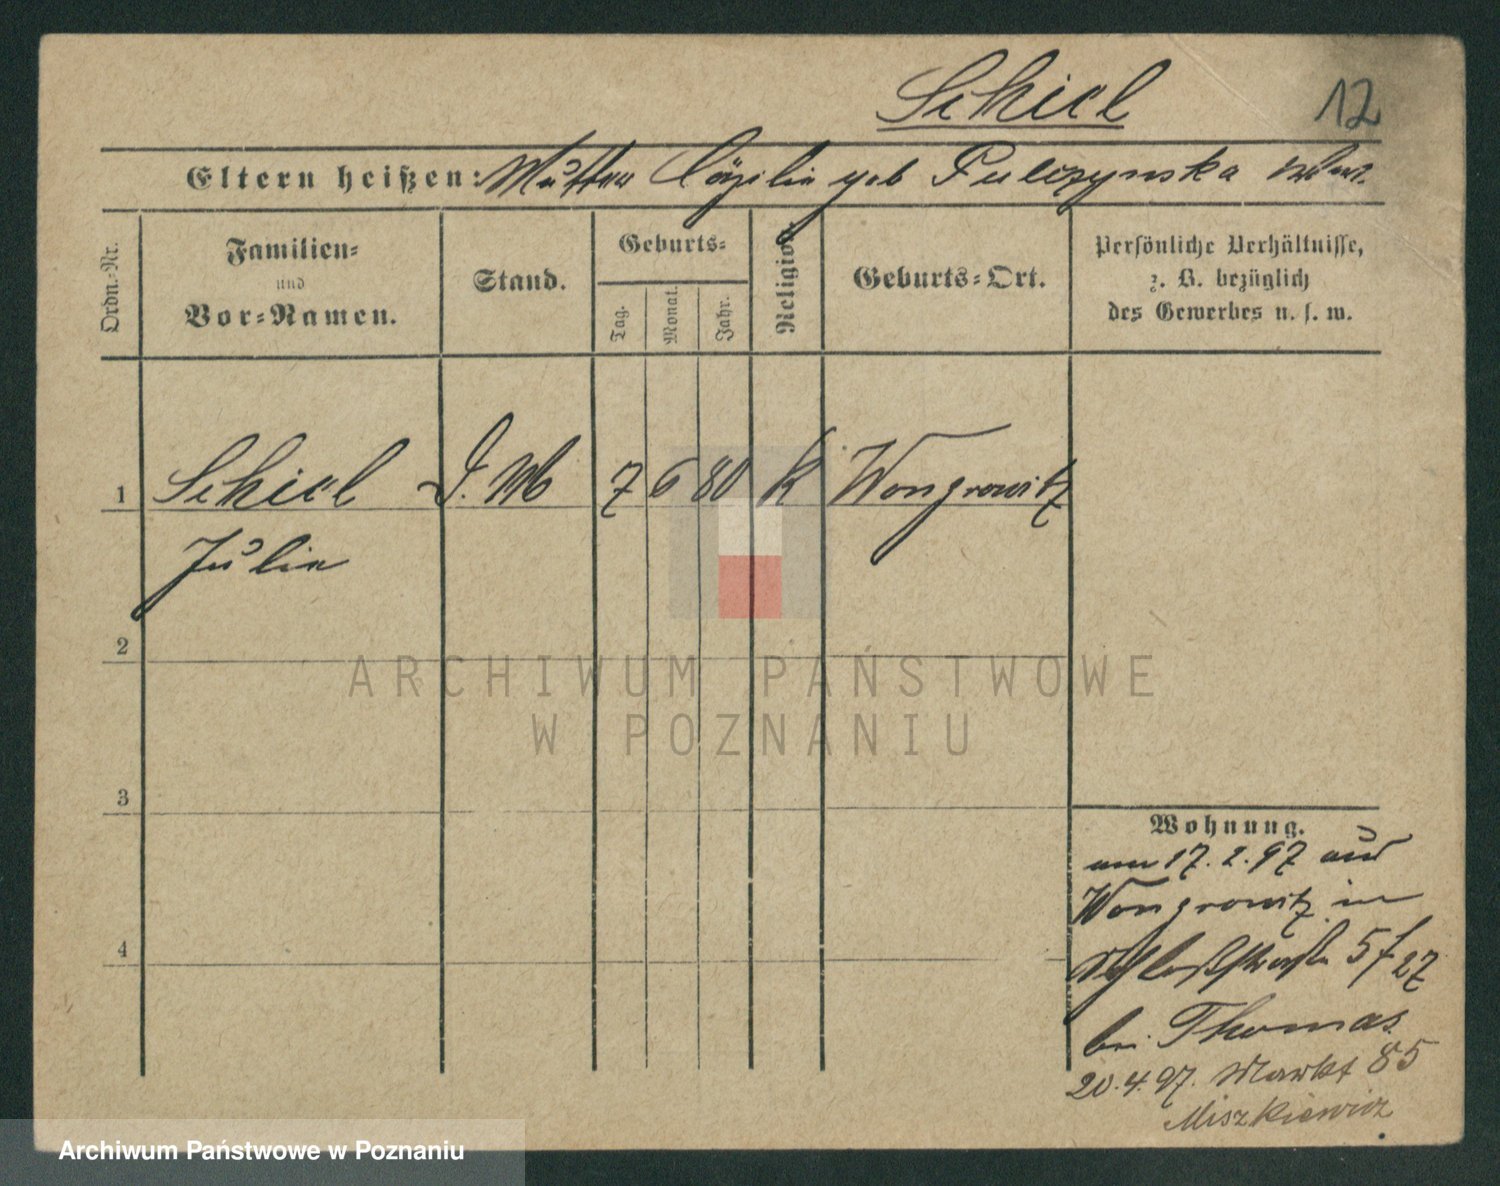 Schiel
12
Eltern heißen: Mutter Cäzilie geb Pulczynska
Ordn.-Nr.
Familien-
und
Vor-Namen.
Stand.
Geburts-
Tag.
Monat.
Jahr.
Religion.
Geburts-Ort.
Persönliche Verhältnisse,
z. B. bezüglich
des Gewerbes u. s. w.
1 Schiel D. M 7 6 80 K Wongrowitz
Julie
2
3
4
Wohnung.
am 17. 2. 97 aus
Wongrowitz in
Schloßstraße 5 / 27
bei Thomas
20. 4. 97. Markt 85
Miszkiewicz
ARCHIWUM PAŃSTWOWE
W POZNANIU
Archiwum Państwowe w Poznaniu